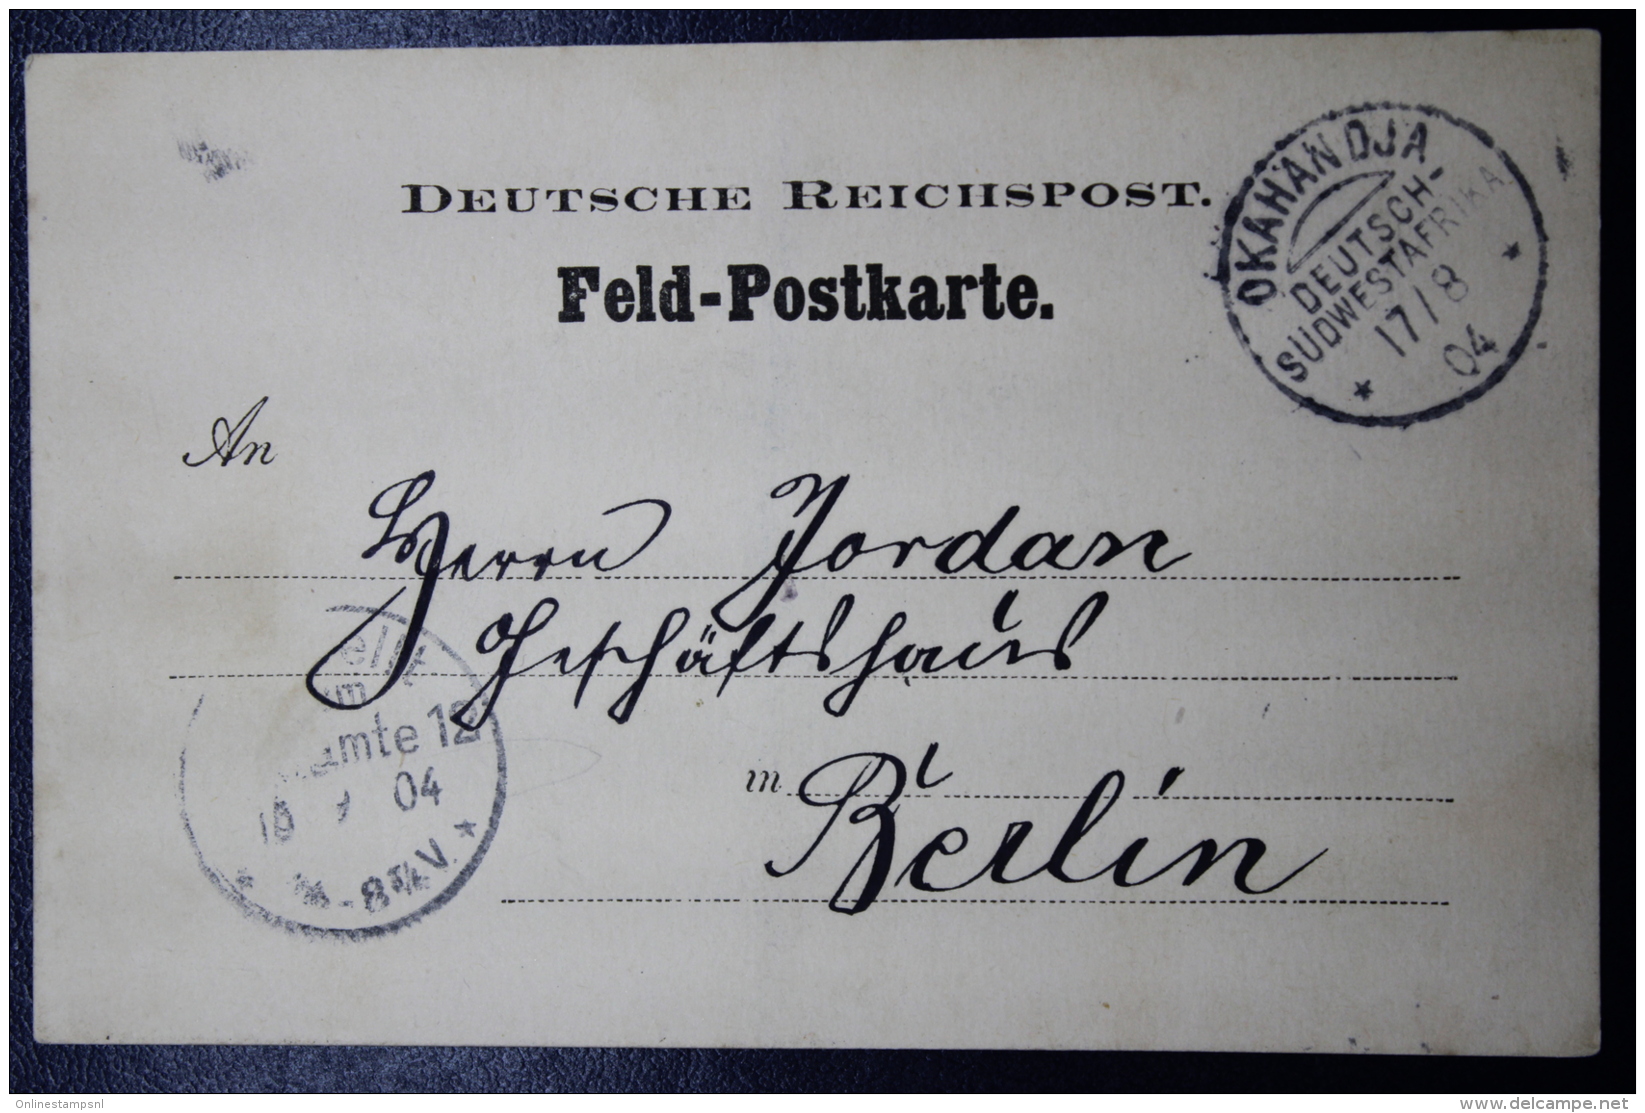 DEUTSCHE REICHSPOST.
Feld-Postkarte.
OKAHANDJA
DEUTSCH-
SÜDWESTAFRIKA
17/8
04
An
Herrn Jordan
Geschäftshaus
in Berlin
amte 12
04
-8¾V.
Onlinestampsnl
www.delcampe.net